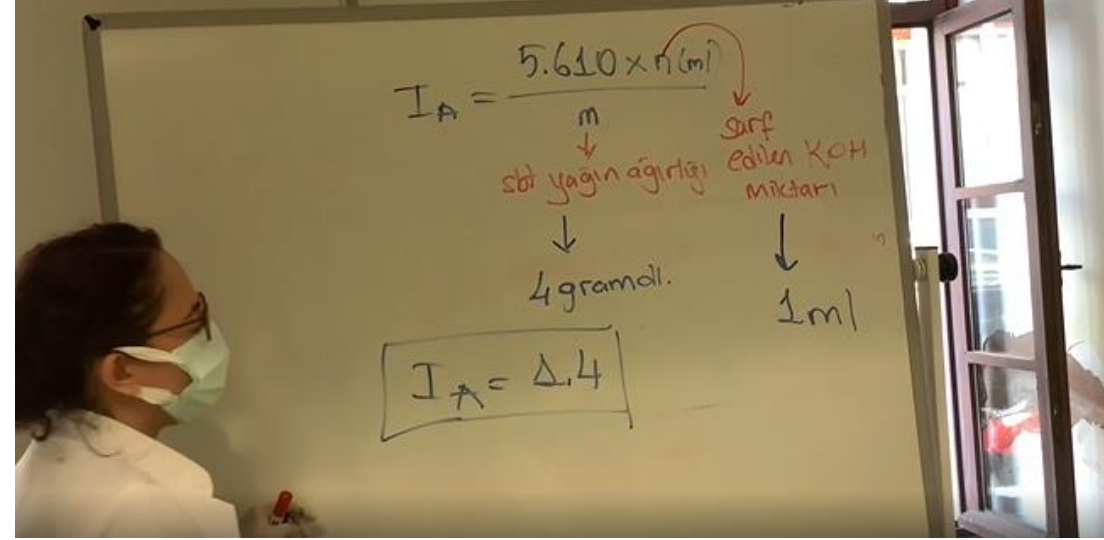 I_A = 5.610 x n(ml)
m
sbt yağın ağırlığı
sarf
edilen KOH
miktarı
4 gramdı.
1ml
I_A = 1.4